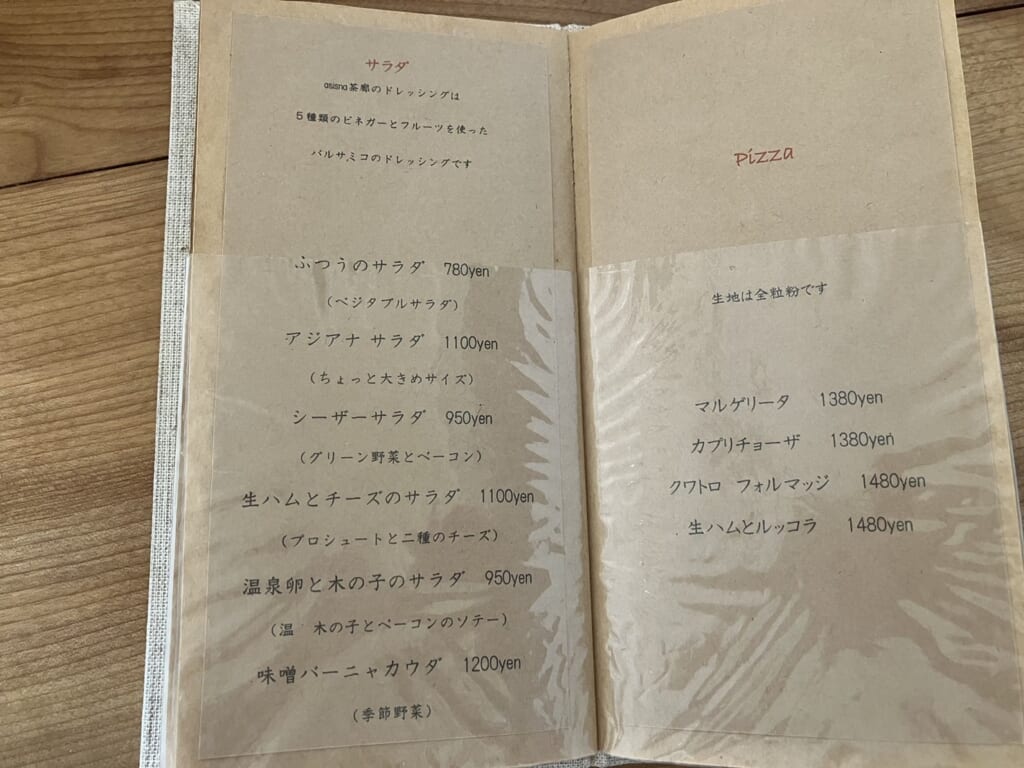 サラダ
asisna茶廊のドレッシングは
5種類のビネガーとフルーツを使った
バルサミコのドレッシングです
ふつうのサラダ 780yen
(ベジタブルサラダ)
アジアナ サラダ 1100yen
(ちょっと大きめサイズ)
シーザーサラダ 950yen
(グリーン野菜とベーコン)
生ハムとチーズのサラダ 1100yen
(プロシュートと二種のチーズ)
温泉卵と木の子のサラダ 950yen
(温 木の子とベーコンのソテー)
味噌バーニャカウダ 1200yen
(季節野菜)
pizza
生地は全粒粉です
マルゲリータ 1380yen
カプリチョーザ 1380yen
クワトロ フォルマッジ 1480yen
生ハムとルッコラ 1480yen